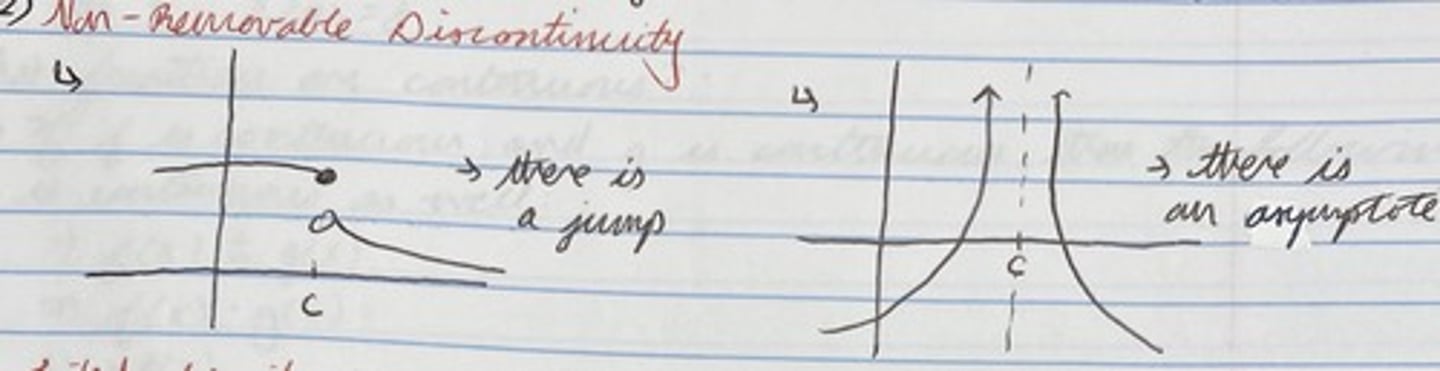 2) Non-Removable Discontinuity
↳
→ there is
a jump
C
↳
→ there is
an asymptote
C